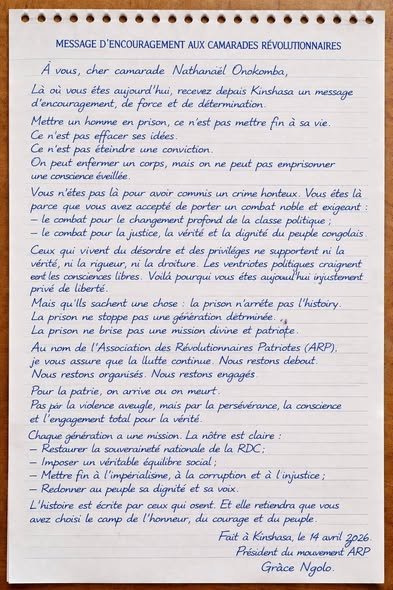 MESSAGE D'ENCOURAGEMENT AUX CAMARADES RÉVOLUTIONNAIRES
À vous, cher camarade Nathanaël Onokomba,
Là où vous êtes aujourd'hui, recevez depais Kinshasa un message
d'encouragement, de force et de détermination.
Mettre un homme en prison, ce n'est pas mettre fin à sa vie.
Ce n'est pas effacer ses idées.
Ce n'est pas éteindre une conviction.
On peut enfermer un corps, mais on ne peut pas emprisonner
une conscience éveillée.
Vous n'êtes pas là pour avoir commis un crime honteux. Vous êtes là
parce que vous avez accepté de porter un combat noble et exigeant :
– le combat pour le changement profond de la classe politique ;
– le combat pour la justice, la vérité et la dignité du peuple congolais.
Ceux qui vivent du désordre et des privilèges ne supportent ni la
vérité, ni la rigueur, ni la droiture. Les ventriotes politiques craignent
les consciences libres. Voilà pourquoi vous êtes injustement
privé de liberté.
Mais qu'ils sachent une chose : la prison n'arrête pas l'histoiry.
La prison ne stoppe pas une génération détrminée.
La prison ne brise pas une mission divine et patriote.
Au nom de l'Association des Révolutionnaires Patriotes (ARP),
je vous assure que la llutte continue. Nous restons debout.
Nous restons organisés. Nous restons engagés.
Pour la patrie, on arrive ou on meurt.
Pas par la violence aveugle, mais par la persévérance, la conscience
et l'engagement total pour la vérité.
Chaque génération a une mission. La nôtre est claire :
– Restaurer la souveraineté nationale de la RDC ;
– Imposer un véritable équilibre social ;
– Mettre fin à l'impérialisme, à la corruption et à l'injustice ;
– Redonner au peuple sa dignité et sa voix.
L'histoire est écrite par ceux qui osent. Et elle retiendra que vous
avez choisi le camp de l'honneur, du courage et du peuple.
Fait à Kinshasa, le 14 avril 2026.
Président du mouvement ARP
Gràce Ngolo.